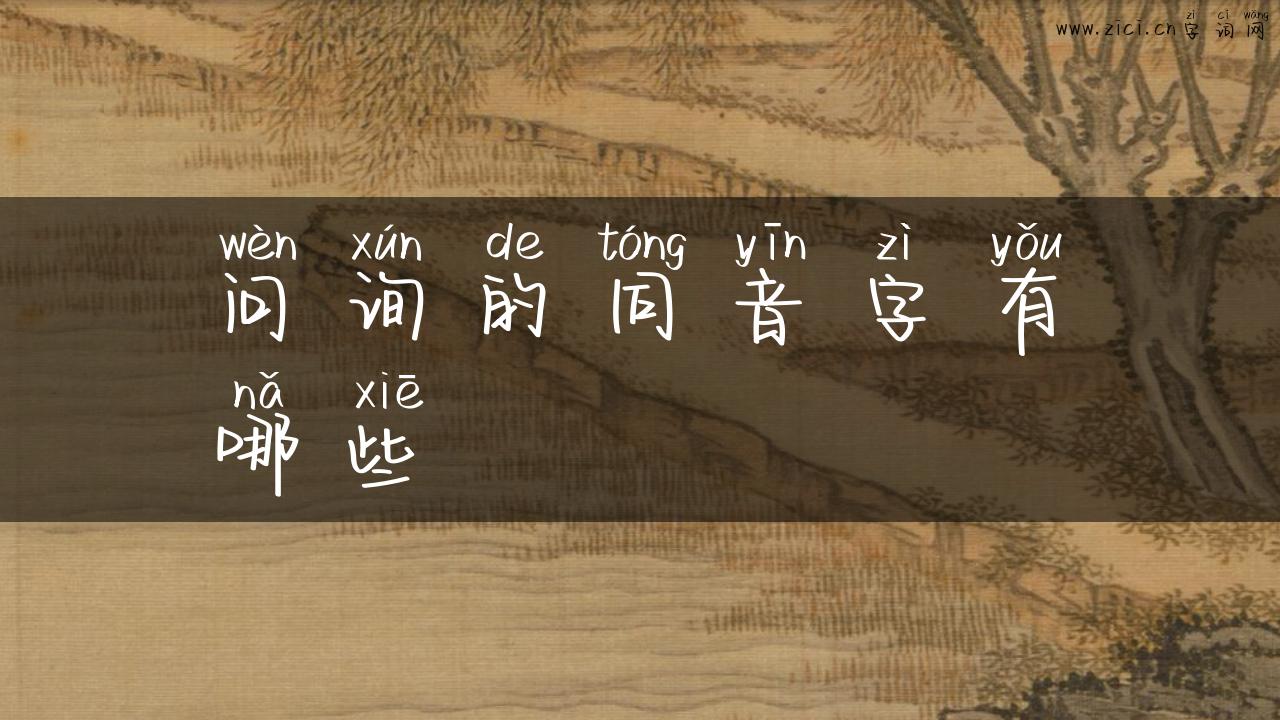 zì cí wǎng
www.zici.cn字词网
wèn xún de tóng yīn zì yǒu
问询的同音字有
nǎ xiē
哪些